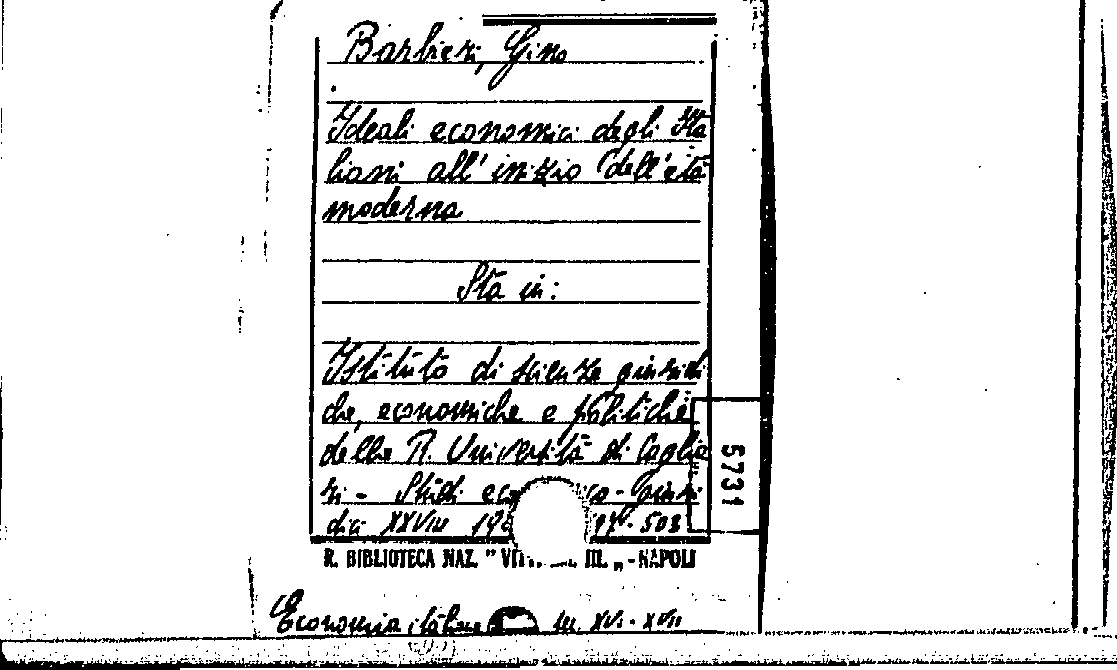 Barbieri, Gino
Ideali economici degli Ita
liani all'inizio dell'età
moderna
Sta in:
Istituto di scienze giuridi
che, economiche e politiche
della R. Università di Caglia
ri - Studi
dici XXVIII
5731
R. BIBLIOTECA NAZ. " III. „ - NAPOLI
Economia italiana XVI - XVII